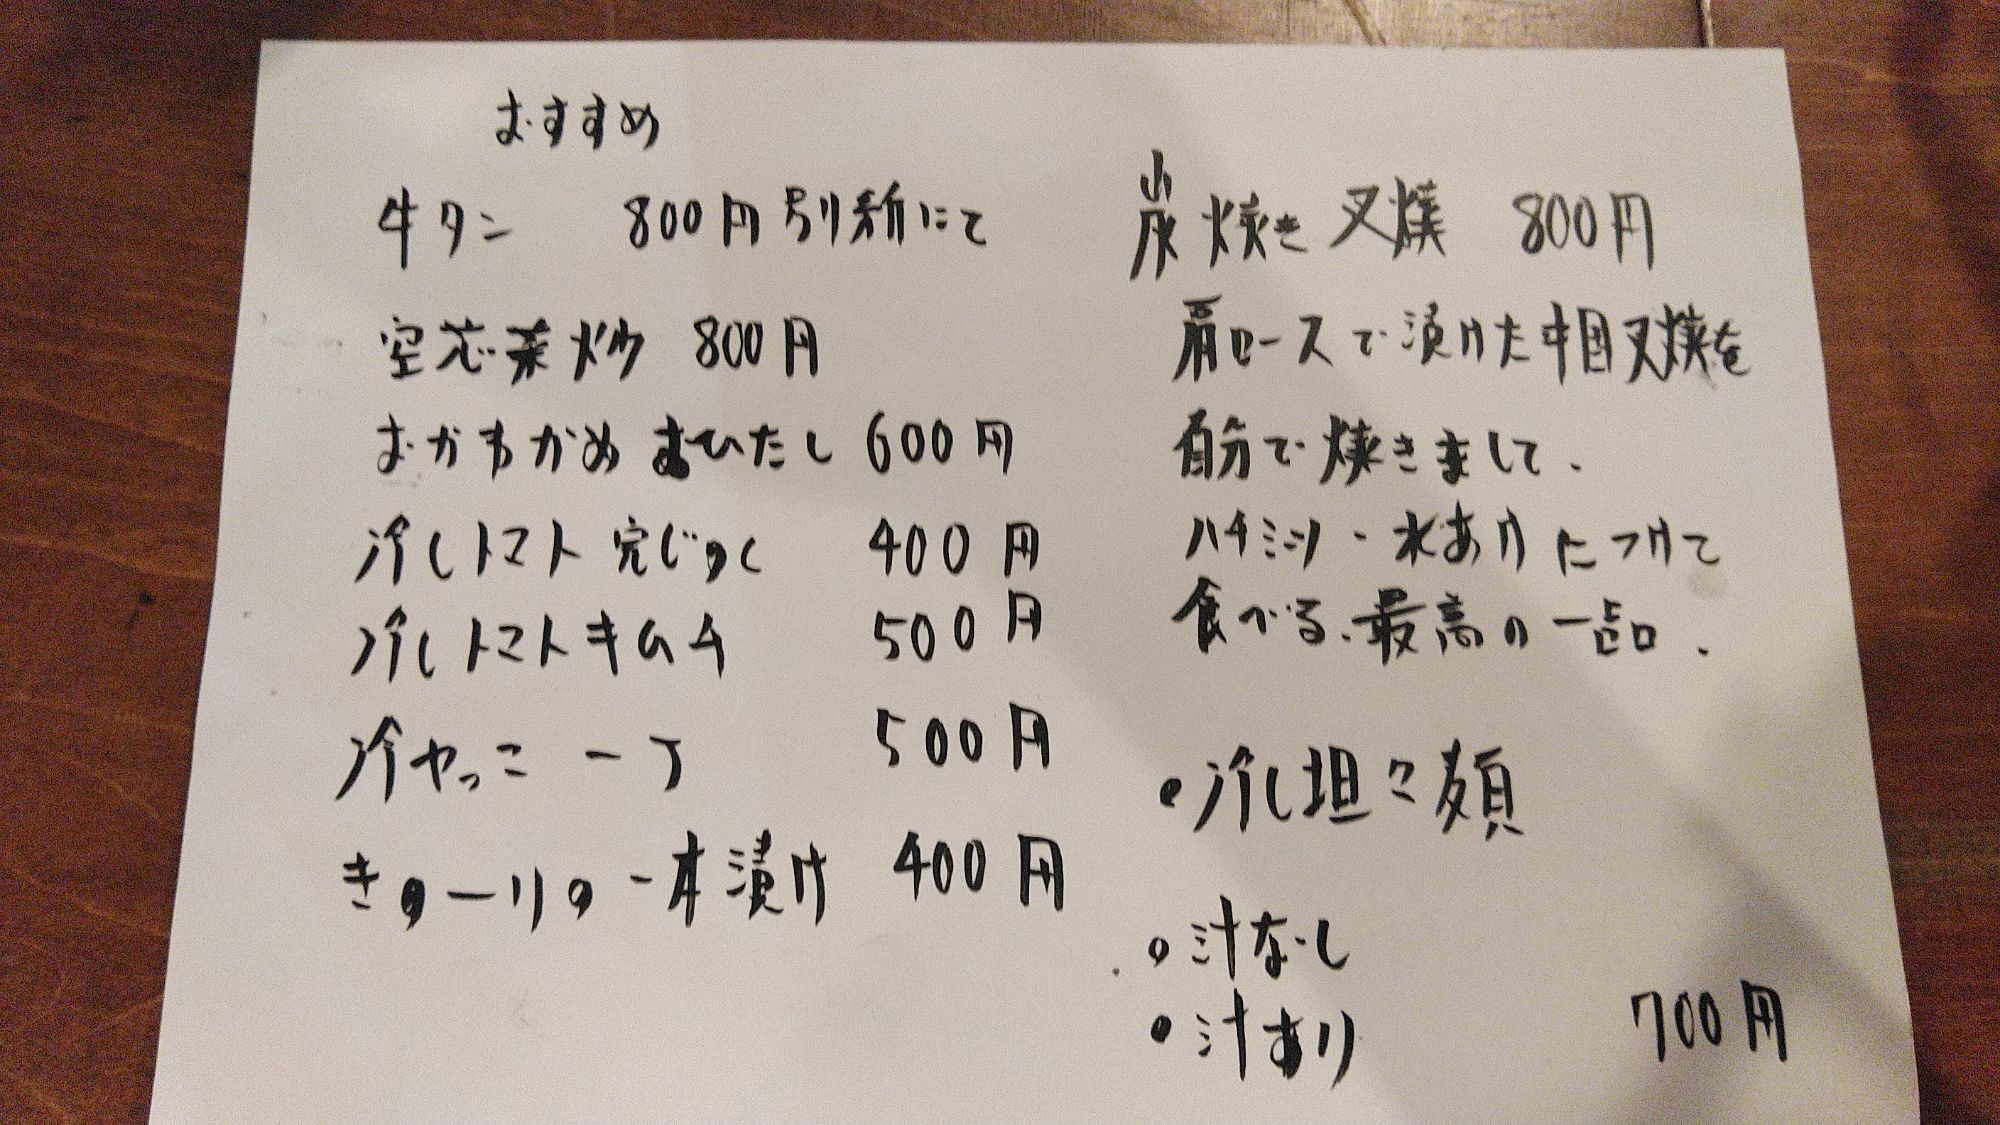 おすすめ
牛タン 800円 別紙にて
空芯菜炒 800円
おかわかめ おひたし 600円
冷しトマト 完じゅく 400円
冷しトマトキムチ 500円
冷やっこ 一丁 500円
きゅーりの一本漬け 400円
炭焼き 叉焼 800円
肩ロースで漬けた中国叉焼を
自分で焼きまして、
ハチミツ・水あめにつけて
食べる、最高の一品.
・冷し坦々麺
・汁なし
・汁あり 700円